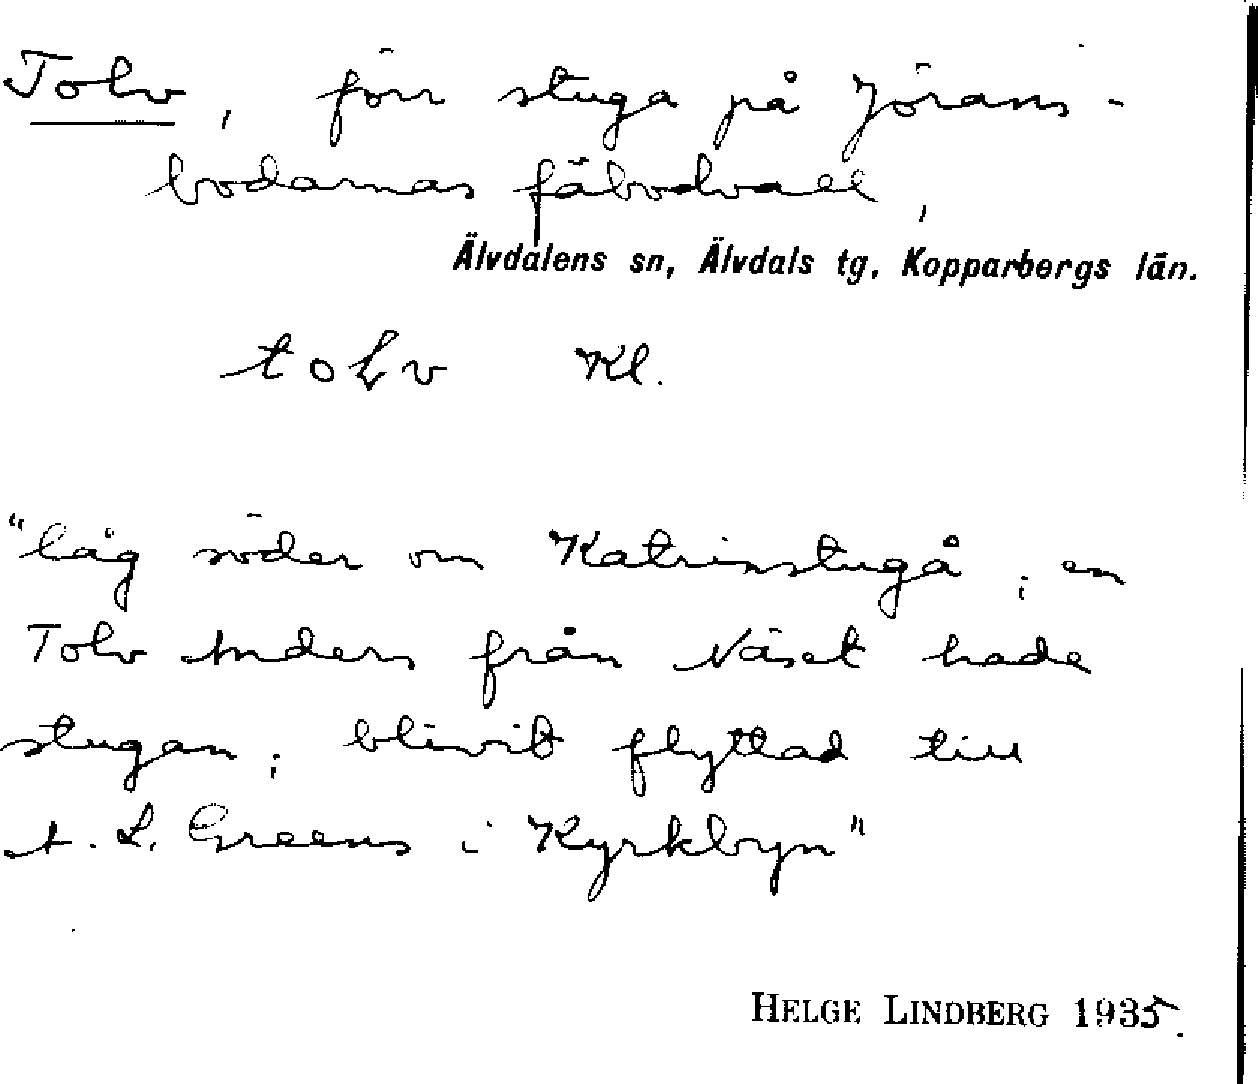 Tolv, förr stuga på Jörans-
bodarnas fäbodvall,
Älvdalens sn, Älvdals tg, Kopparbergs län.
tolv Kl.
"låg söder om Katrinstugå; en
Tolv Anders från Näset hade
stugan; blivit flyttad till
A. L. Greens i Kyrkbyn"
HELGE LINDBERG 1935.